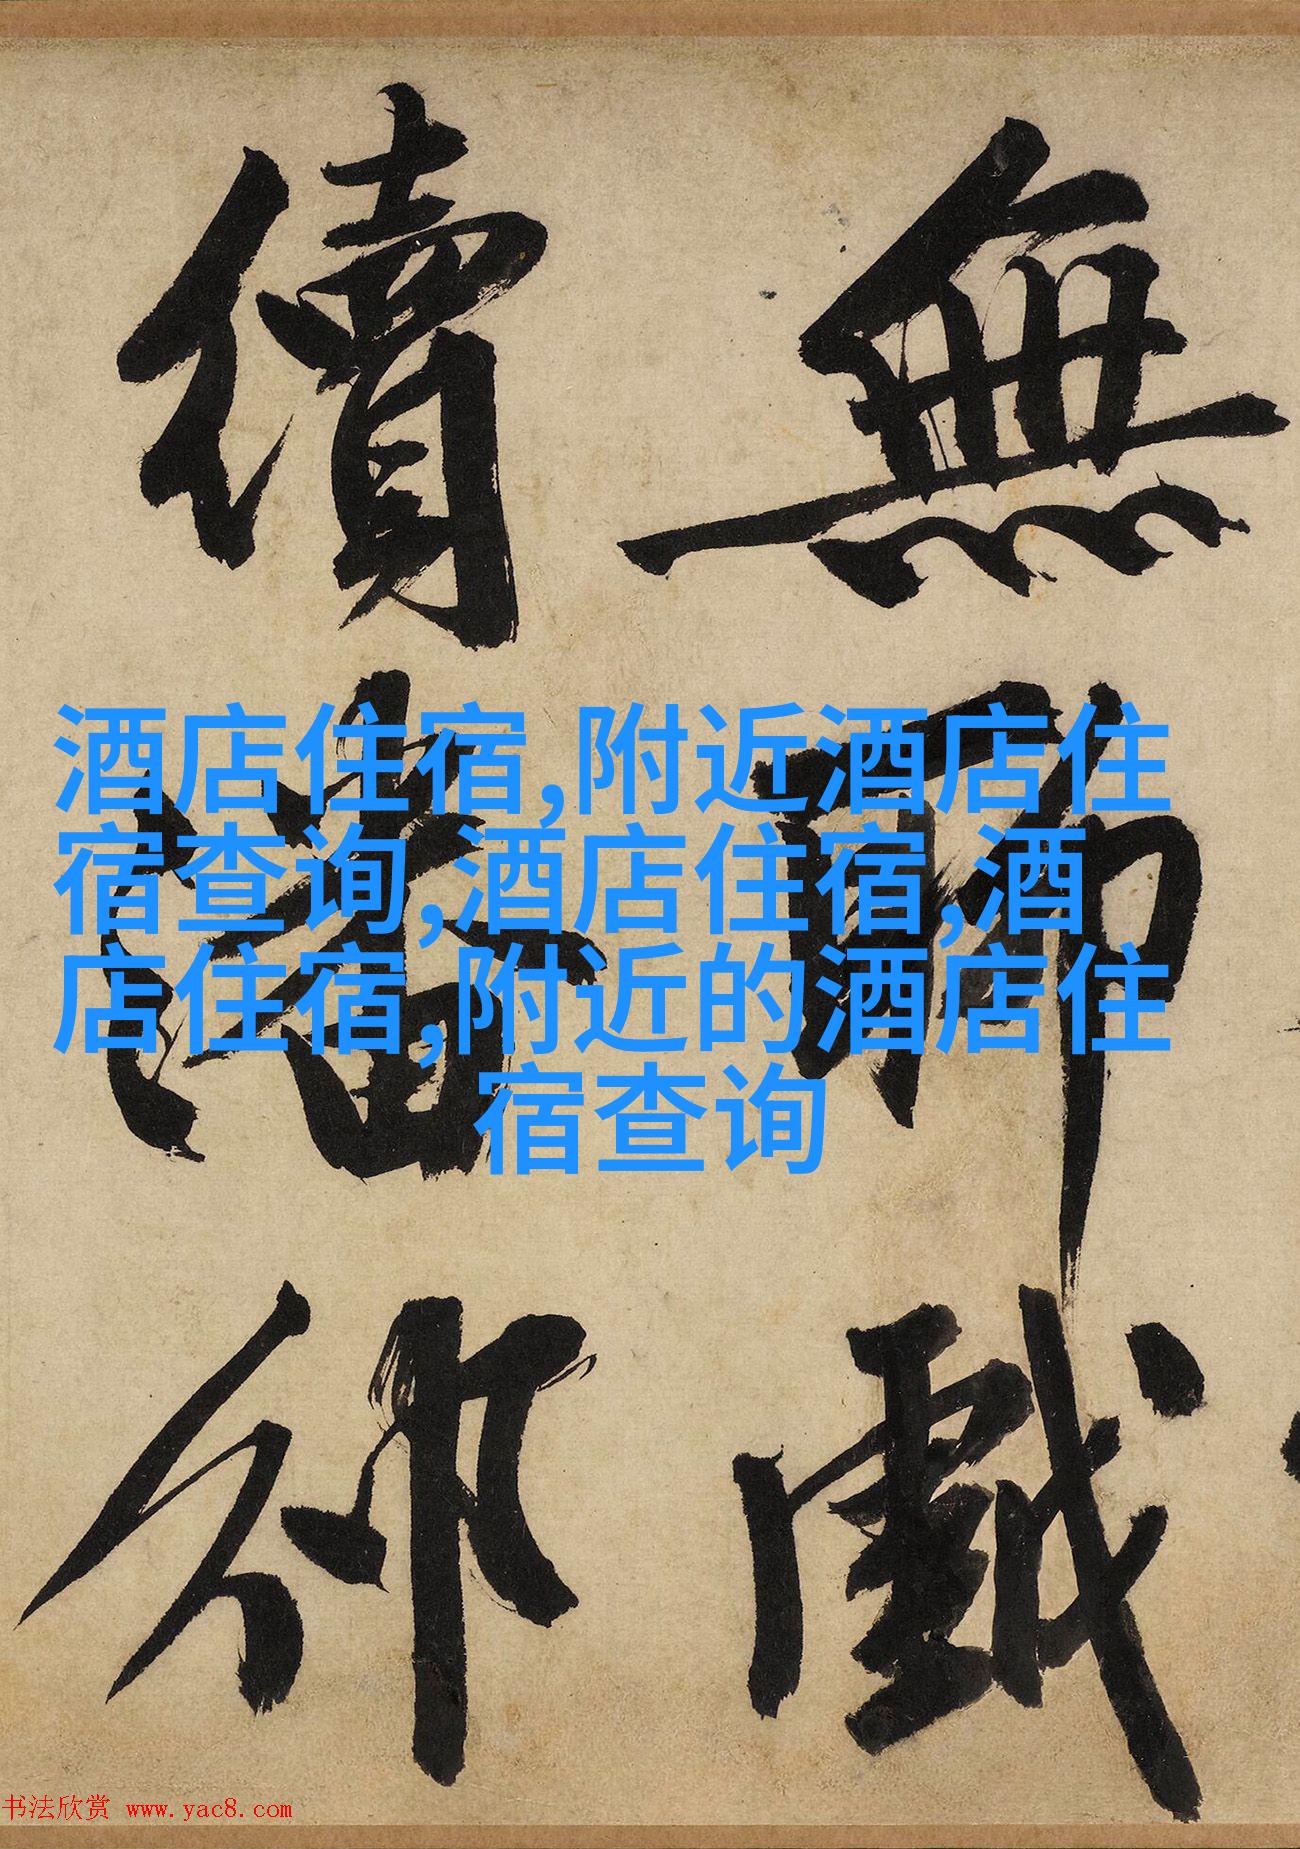 無聊戲
續潘邠
酒店住宿,附近酒店住
宿查询,酒店住宿,酒
店住宿,附近的酒店住
宿查询
书法欣赏 www.yac8.com